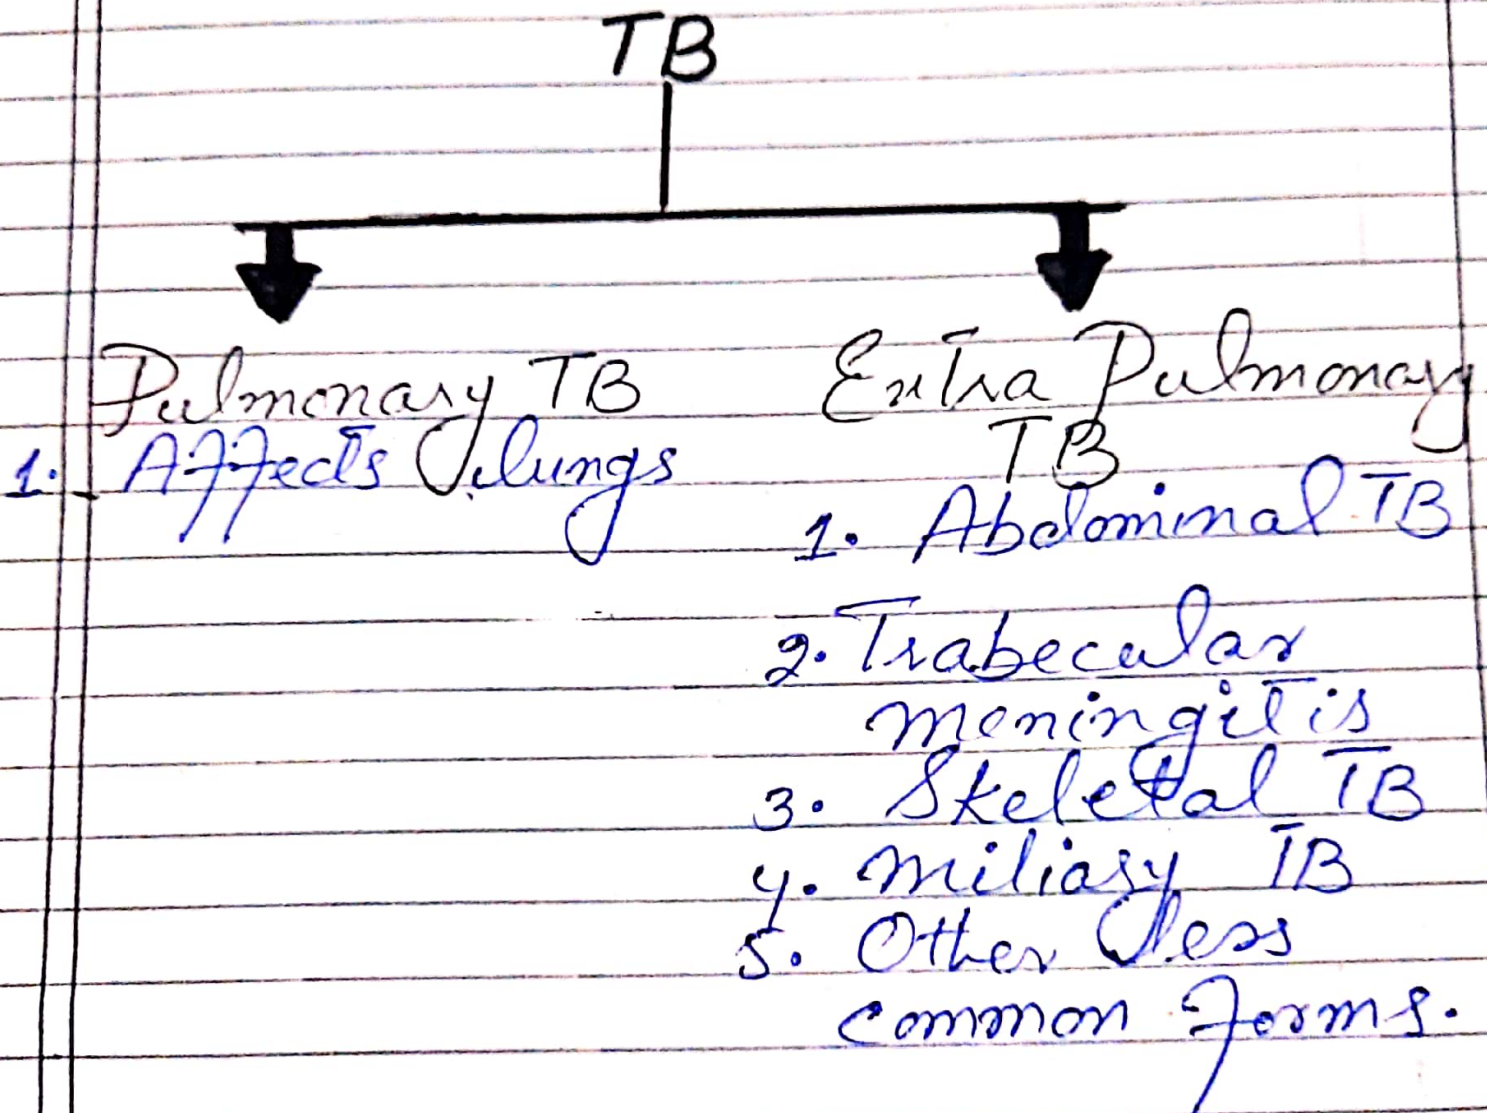 TB
Pulmonary TB
1. Affects lungs
Extra Pulmonary
TB
1. Abdominal TB
2. Trabecular
meningitis
3. Skeletal TB
4. miliary TB
5. Other less
common forms.